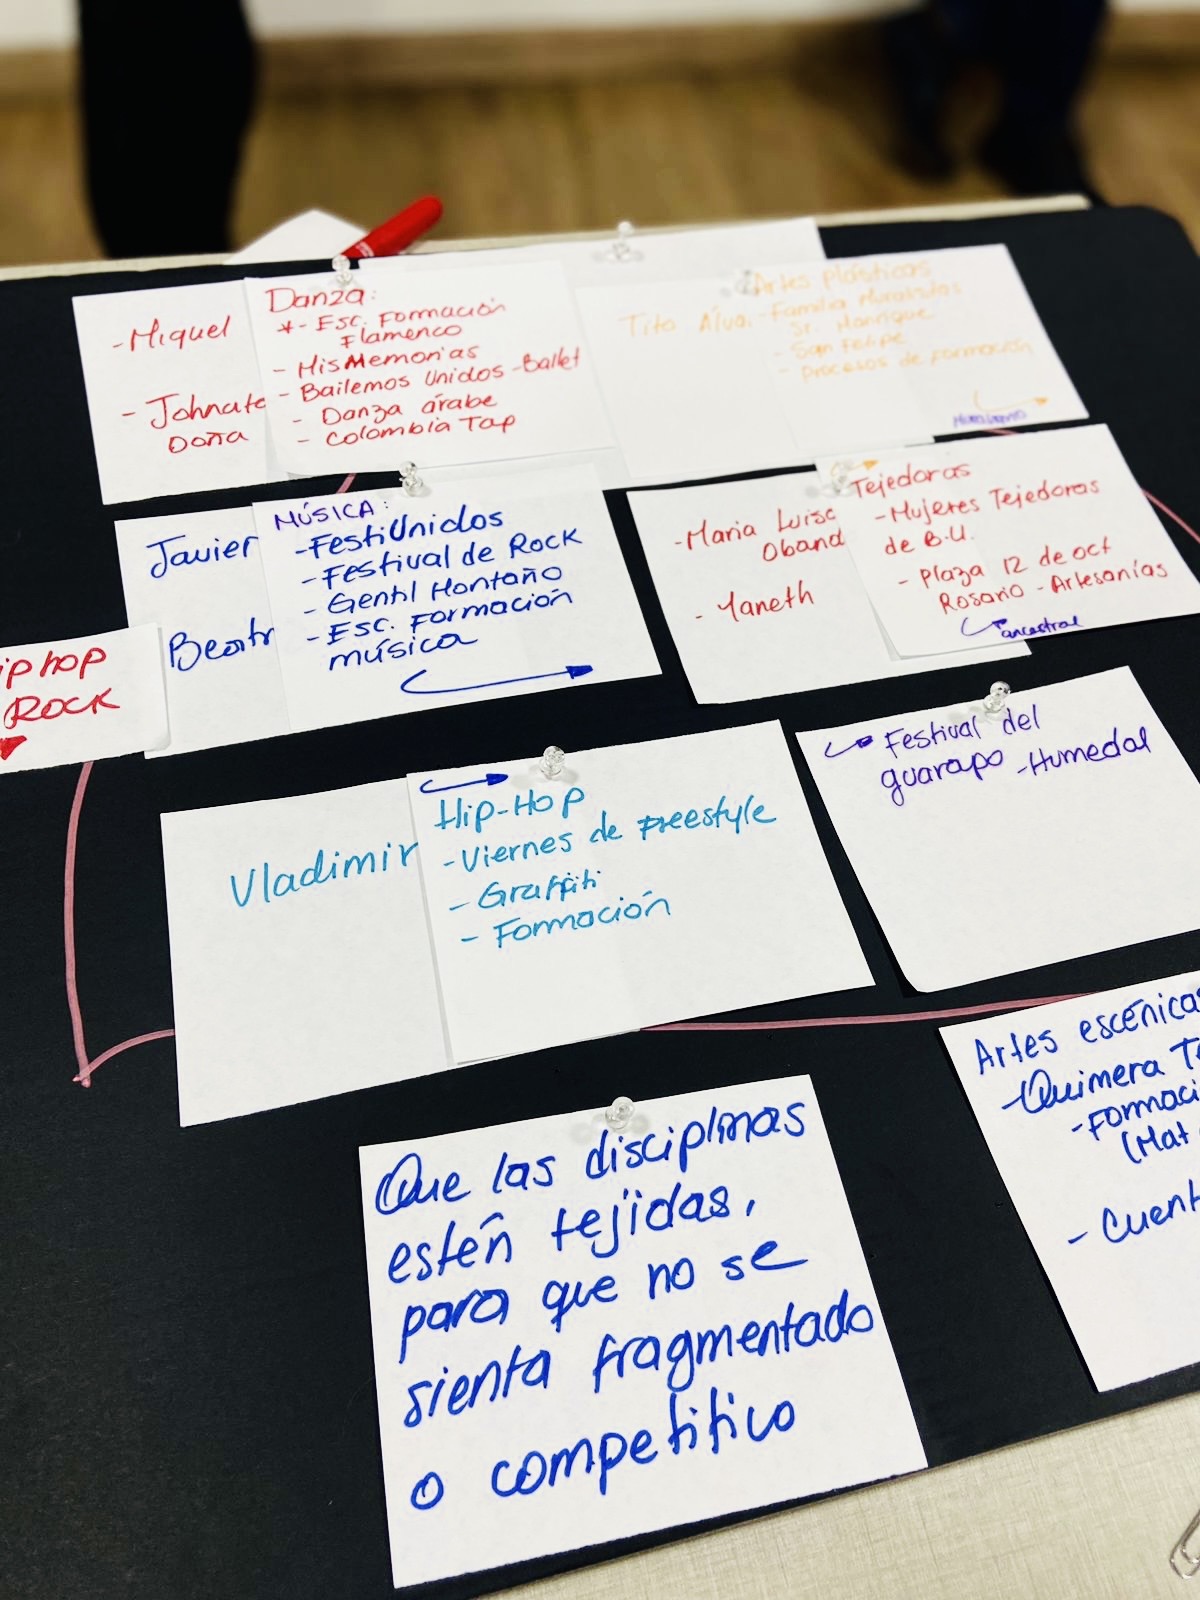 -Miguel
-Johnat
Doña
Danza:
*- Esc. Formación
Flamenco
- HisMemorias
- Bailemos Unidos -Ballet
- Danza árabe
- Colombia Tap
Tito Alva.
Artes plásticas
-Familia Muralistas
Sr. Manrique
- San Felipe
- Procesos de formación
Javier
Beatr
MÚSICA:
-FestiUnidos
-Festival de Rock
- Gentil Montaño
- Esc. Formación
música
-Maria Luisa
Oband
- Yaneth
Tejedoras
-Mujeres Tejedoras
de B.U.
- Plaza 12 de oct
Rosario - Artesanías
ancestral
iphop
ROCK
Vladimir
Hip-Hop
-Viernes de Freestyle
- Graffiti
- Formación
Festival del
guarapo -Humedal
Artes escénicas
-Quimera T
-Formaci
(Mat
- Cuent
Que las disciplinas
estén tejidas,
para que no se
sienta fragmentado
o competitivo